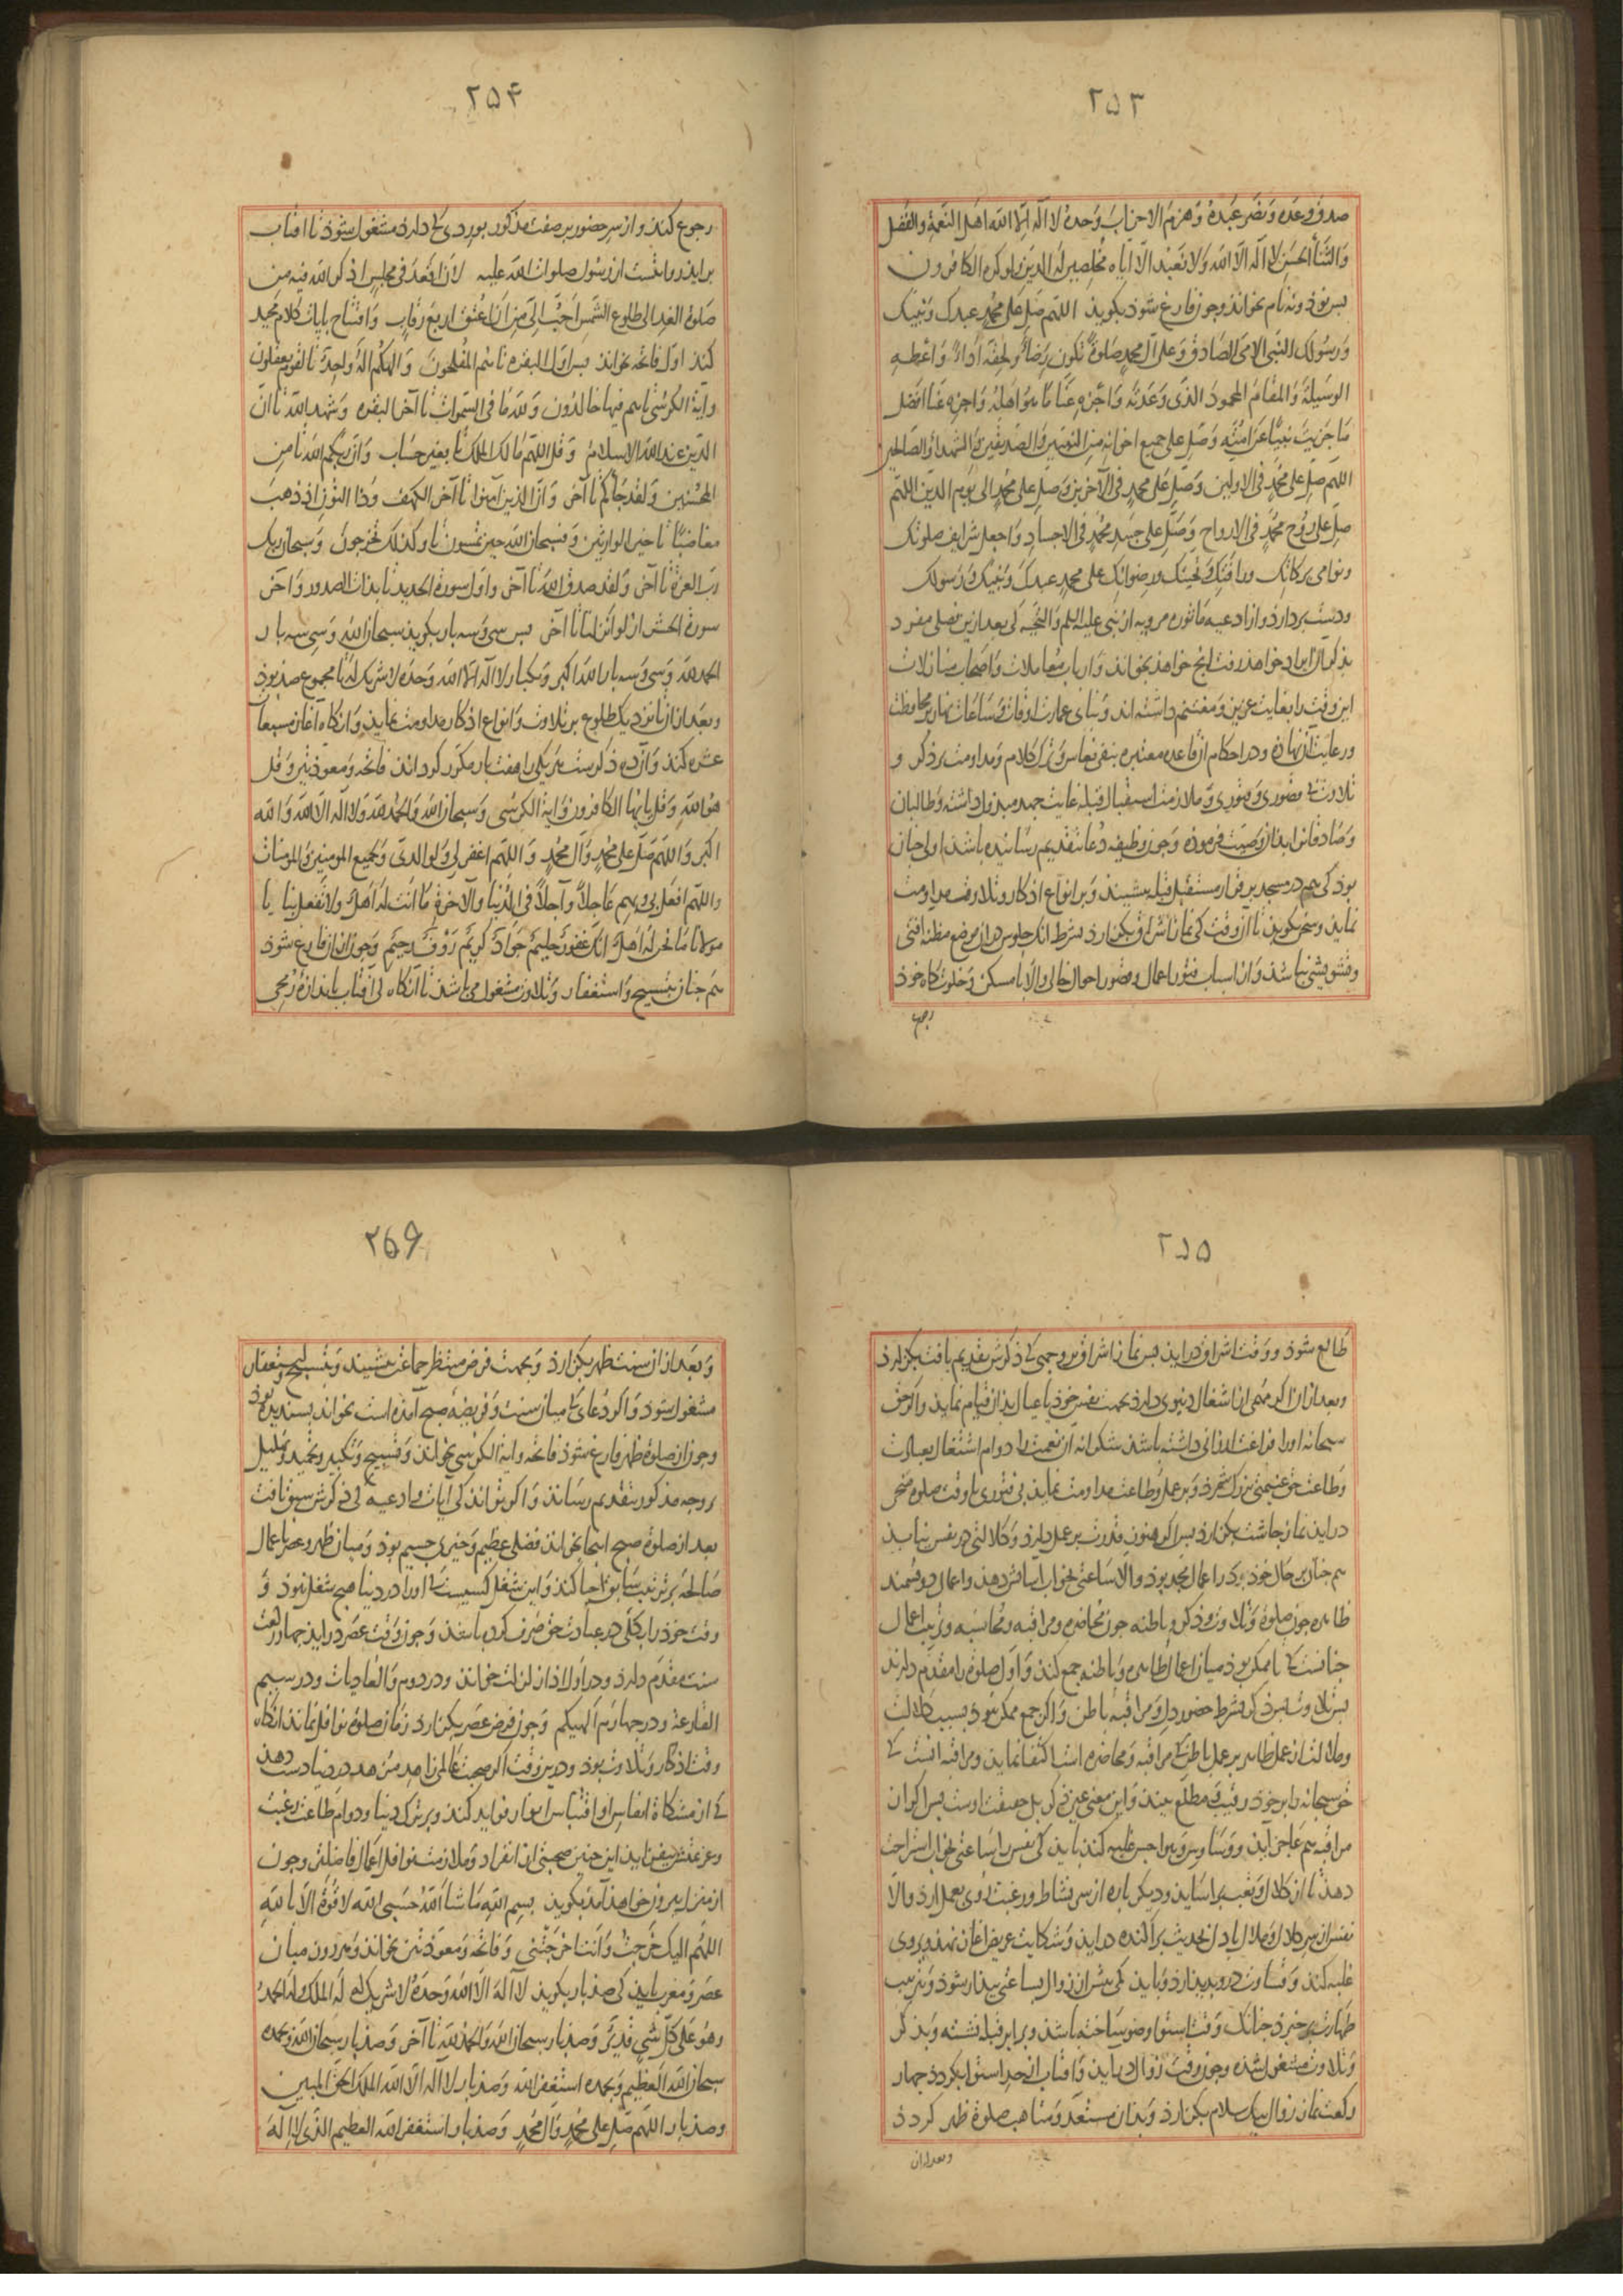 ۲۵۳
صدق وعده ونصر عبده وهزم الاحزاب وحده لا اله الا الله اهل النعمة والفضل
والثنأ الحسن لا اله الا الله ولا نعبد الا اياه مخلصین له الدین ولو کره الکافرون
بس نوذ ونه نام بخواند وجون فارغ شوذ بکویذ اللهم صل علی محمد عبدک ونبیک
ورسولک النبی الامی الصادق وعلی آل محمد صلوة تکون رضأ ولحقه اداءً واعطه
الوسیلة والمقام المحمود الذی وعدته واجزه عنا ما هو اهله واجزه عنا افضل
ما جزیت نبیا عن امته وصل علی جمیع اخوانه من النبیین والصدیقین والشهدأ والصالحین
اللهم صل علی محمد فی الاولین وصل علی محمد فی الآخرین وصل علی محمد الی یوم الدین اللهم
صل علی روح محمد فی الارواح وصل علی جسد محمد فی الاجساد واجعل شرایف صلوتک
ونوامی برکاتک ورافتک وتحیتک ورضوانک علی محمد عبدک ونبیک ورسولک
ودست بردارذ واز ادعیه ماثوره مرویه از نبی علیه السلم والتحیه کی بعد ازین فصلی مفرد
بذکر آن ایراد خواهذ رفت انج خواهذ بخواند وارباب معاملات واصحاب منازلات
این وقت را بغایت عزیز ومغتنم داشته اند وبنای عمارت اوقات وساعات نهار بر محافظت
ورعایت آن نهاذه ودر احکام این قاعده معتبره بنفی نعاس وترک کلام ومداومت بر ذکر و
تلاوت بی فتوری وقصوری وملازمت استقبال قبله غایت جهد مبذول داشته وطالبان
وصادقانرا بدان وصیت فرموده وجون وظیفه دعا بتقدیم رسانیذه باشد اولی جنان
بوذ کی هم در مسجد برقرار مستقبل قبله بنشیند وبر انواع اذکار وتلاوت مداومت
نمایذ وسخن نکویذ تا آن وقت کی نماز اشراق بکزارذ بشرط انک جلوس در ان موضع مظنه آفتی
وتشویشی نباشد واز اسباب فتور اعمال وقصور احوال خالی والا با مسکن وخلوتکاه خوذ
رجوع
۲۵۴
رجوع کند واز سر حضور بر صفت مذکور بوردی کی دارذ مشغول شوذ تا افتاب
برایذ روایتست از رسول صلوات الله علیه لان اقعد فی مجلس اذکر الله فیه من
صلوة الغد الی طلوع الشمس احب الی من ان اعتق اربع رقاب وافتتاح بایات کلام مجید
کند اول فاتحه بخواند بس اول البقره تا هم المفلحون والهکم اله واحد تا لقوم یعقلون
وآیة الکرسی تا هم فیها خالدون ولله ما فی السموات تا آخر البقره وشهد الله تا ان
الدین عند الله الاسلام وقل اللهم مالک الملک تا بغیر حساب وان ربکم الله تا من
المحسنین ولقد جأکم تا آخر وان الذین آمنوا تا آخر الکهف وذا النون اذ ذهب
مغاضبا تا خیر الوارثین وفسبحان الله حین تمسون تا وکذلک تخرجون وسبحان ربک
رب العزة تا آخر ولقد صدق الله تا آخر واول سورة الحدید تا بذات الصدور وآخر
سورة الحشر از لو انزلنا تا آخر بس سی وسه بار بکوید سبحان الله وسی وسه بار
الحمدلله وسی وسه بار الله اکبر ویکبار لا اله الا الله وحده لا شریک له تا مجموع صذ بوذ
وبعد از ان تا نزدیک طلوع بر تلاوت وانواع اذکار مداومت نمایذ وانکاه آغاز مسبعات
عشر کند وآن ده ذکرست هر یکی را هفت بار مکرر کرداند فاتحه ومعوذتین وقل
هو الله وقل یا ایها الکافرون وایة الکرسی وسبحان الله والحمدلله ولا اله الا الله والله
اکبر واللهم صل علی محمد وآل محمد واللهم اغفر لی ولوالدی ولجمیع المومنین والمومنات
واللهم افعل بی وبهم عاجلاً وآجلاً فی الدنیا والآخرة ما انت له اهل ولا تفعل بنا یا
مولانا ما نحن له اهل انک غفور حلیم جواد کریم رؤف رحیم وجون از ان فارغ شوذ
هم جنان بتسبیح واستغفار وتلاوت مشغول می باشد تا آنکاه کی آفتاب باندازه رمحی
۲۵۵
طالع شوذ ووقت اشراق درایذ بس نماز اشراق بر وجهی کی ذکرش تقدیم یافت بکزارذ
وبعد از ان اکر مهمی از اشغال دنیوی دارذ بجهت نفس خوذ یا عیال بذان قیام نمایذ واکر حق
سبحانه او را فراغت ارزانی داشته باشد شکرانه آن نعمت را دوام اشتغال بعبادت
وطاعت حق غنیمتی بزرک شمرذ وبر عمل وطاعت مداومت نمایذ بی فتوری تا وقت صلوة ضحی
درایذ نماز جاشت بکزارذ بس اکر هنوز قدرت بر عمل دارذ وکلالتی در نفس نیابذ
هم جنان بر حال خوذ بر اعمال مجد بوذ والا ساعتی بخواب آسایش دهذ واعمال دو قسمند
ظاهره جون صلوة وتلاوت وذکر وباطنه جون محاضره ومراقبه ومحاسبه وترتیب اعمال
جنانست کی تا ممکن بوذ میان اعمال ظاهره وباطنه جمع کند واول صلوة را مقدم دارند
بس تلاوت بس ذکر بشرط حضور دل ومراقبه باطن واکر جمع ممکن نبوذ بسبب کلالت
وملالت از عمل ظاهر بر عمل باطن کی مراقبه ومحاضره است اکتفا نماید ومراقبه آنست کی
حق سبحانه را بر خوذ رقیب ومطلع بیند واین معنی عین ذکر بل حقیقت اوست بس اکر از ان
مراقبه هم عاجز آیذ ووساوس وهواجس غلبه کند بایذ کی نفس را ساعتی بخواب استراحت
دهذ تا از کلال وتعب براسایذ ودیکر باره از سر نشاط ورغبت روی بعمل ارذ والا
نفس از سر کلال وملال با دل بحدیث پراکنده درایذ وشکایت عریض آغاز نهد وبر وی
غلبه کند وقساوت درو بدید ارذ وبایذ کی بیش از زوال بساعتی بیدار شوذ وبترتیب
طهارت برخیزذ جنانک وقت استوا وضو ساخته باشذ وبرابر قبله نشسته وبذکر
وتلاوت مشغول شده وجون وقت زوال درایذ وافتاب از حد استوا بکردذ جهار
رکعت نماز زوال بیک سلام بکزارذ وبذان مستعد ومتاهب صلوة ظهر کردذ
وبعد از ان
۲۵۶
وبعد از ان سنت ظهر بکزارذ وبجهت فرض منتظر جماعت بنشیند وبتسبیح واستغفار
مشغول شوذ واکر دعائی کی میان سنت وفریضه صبح آمده است بخواند بسندیده بوذ
وجون از صلوة ظهر فارغ شوذ فاتحه وایة الکرسی بخواند وتسبیح وتکبیر وتحمید وتهلیل
بر وجه مذکور بتقدیم رساند واکر تواند کی آیات وادعیه کی ذکرش سبق یافت
بعد از صلوة صبح اینجا بخواند فضلی عظیم وخیری جسیم بوذ ومیان ظهر وعصر باعمال
صالحه بر ترتیب سابق احیا کند واین شغل کسیست کی او را در دنیا هیج شغل نبوذ و
وقت خوذ را بکلی در عبادت حق صرف کرده باشد وجون وقت عصر درایذ جهار رکعت
سنت مقدم دارذ ودر اول اذا زلزلت خواند ودر دوم والعادیات ودر سیم
القارعة ودر جهارم الهیکم وجون فرض عصر بکزارذ زمان صلوة نوافل نماند آنکاه
وقت اذکار وتلاوت بوذ ودرین وقت اکر صحبت عالمی زاهد متزهد در دنیا دست دهذ
کی از مشکاة انفاس او اقتباس انوار فواید کند وبر ترک دنیا ودوام طاعت رغبت
وعزیمتش بیفزاید این جنین صحبتی از انفراد وملازمت نوافل اعمال فاضلتر وجون
از منزل بیرون خواهذ آمذ بکویذ بسم الله ما شأ الله حسبی الله لا قوة الا بالله
اللهم الیک خرجت وانت اخرجتنی وفاتحه ومعوذتین بخواند وهر روز میان
عصر ومغرب بایذ کی صذ بار بکویذ لا اله الا الله وحده لا شریک له له الملک وله الحمد
وهو علی کل شی قدیر وصذ بار سبحان الله والحمدلله تا آخر وصذ بار سبحان الله وبحمده
سبحان الله العظیم وبحمده استغفر الله وصذ بار لا اله الا الله الملک الحق المبین
وصذ بار اللهم صل علی محمد وآل محمد وصذ بار استغفر الله العظیم الذی لا اله